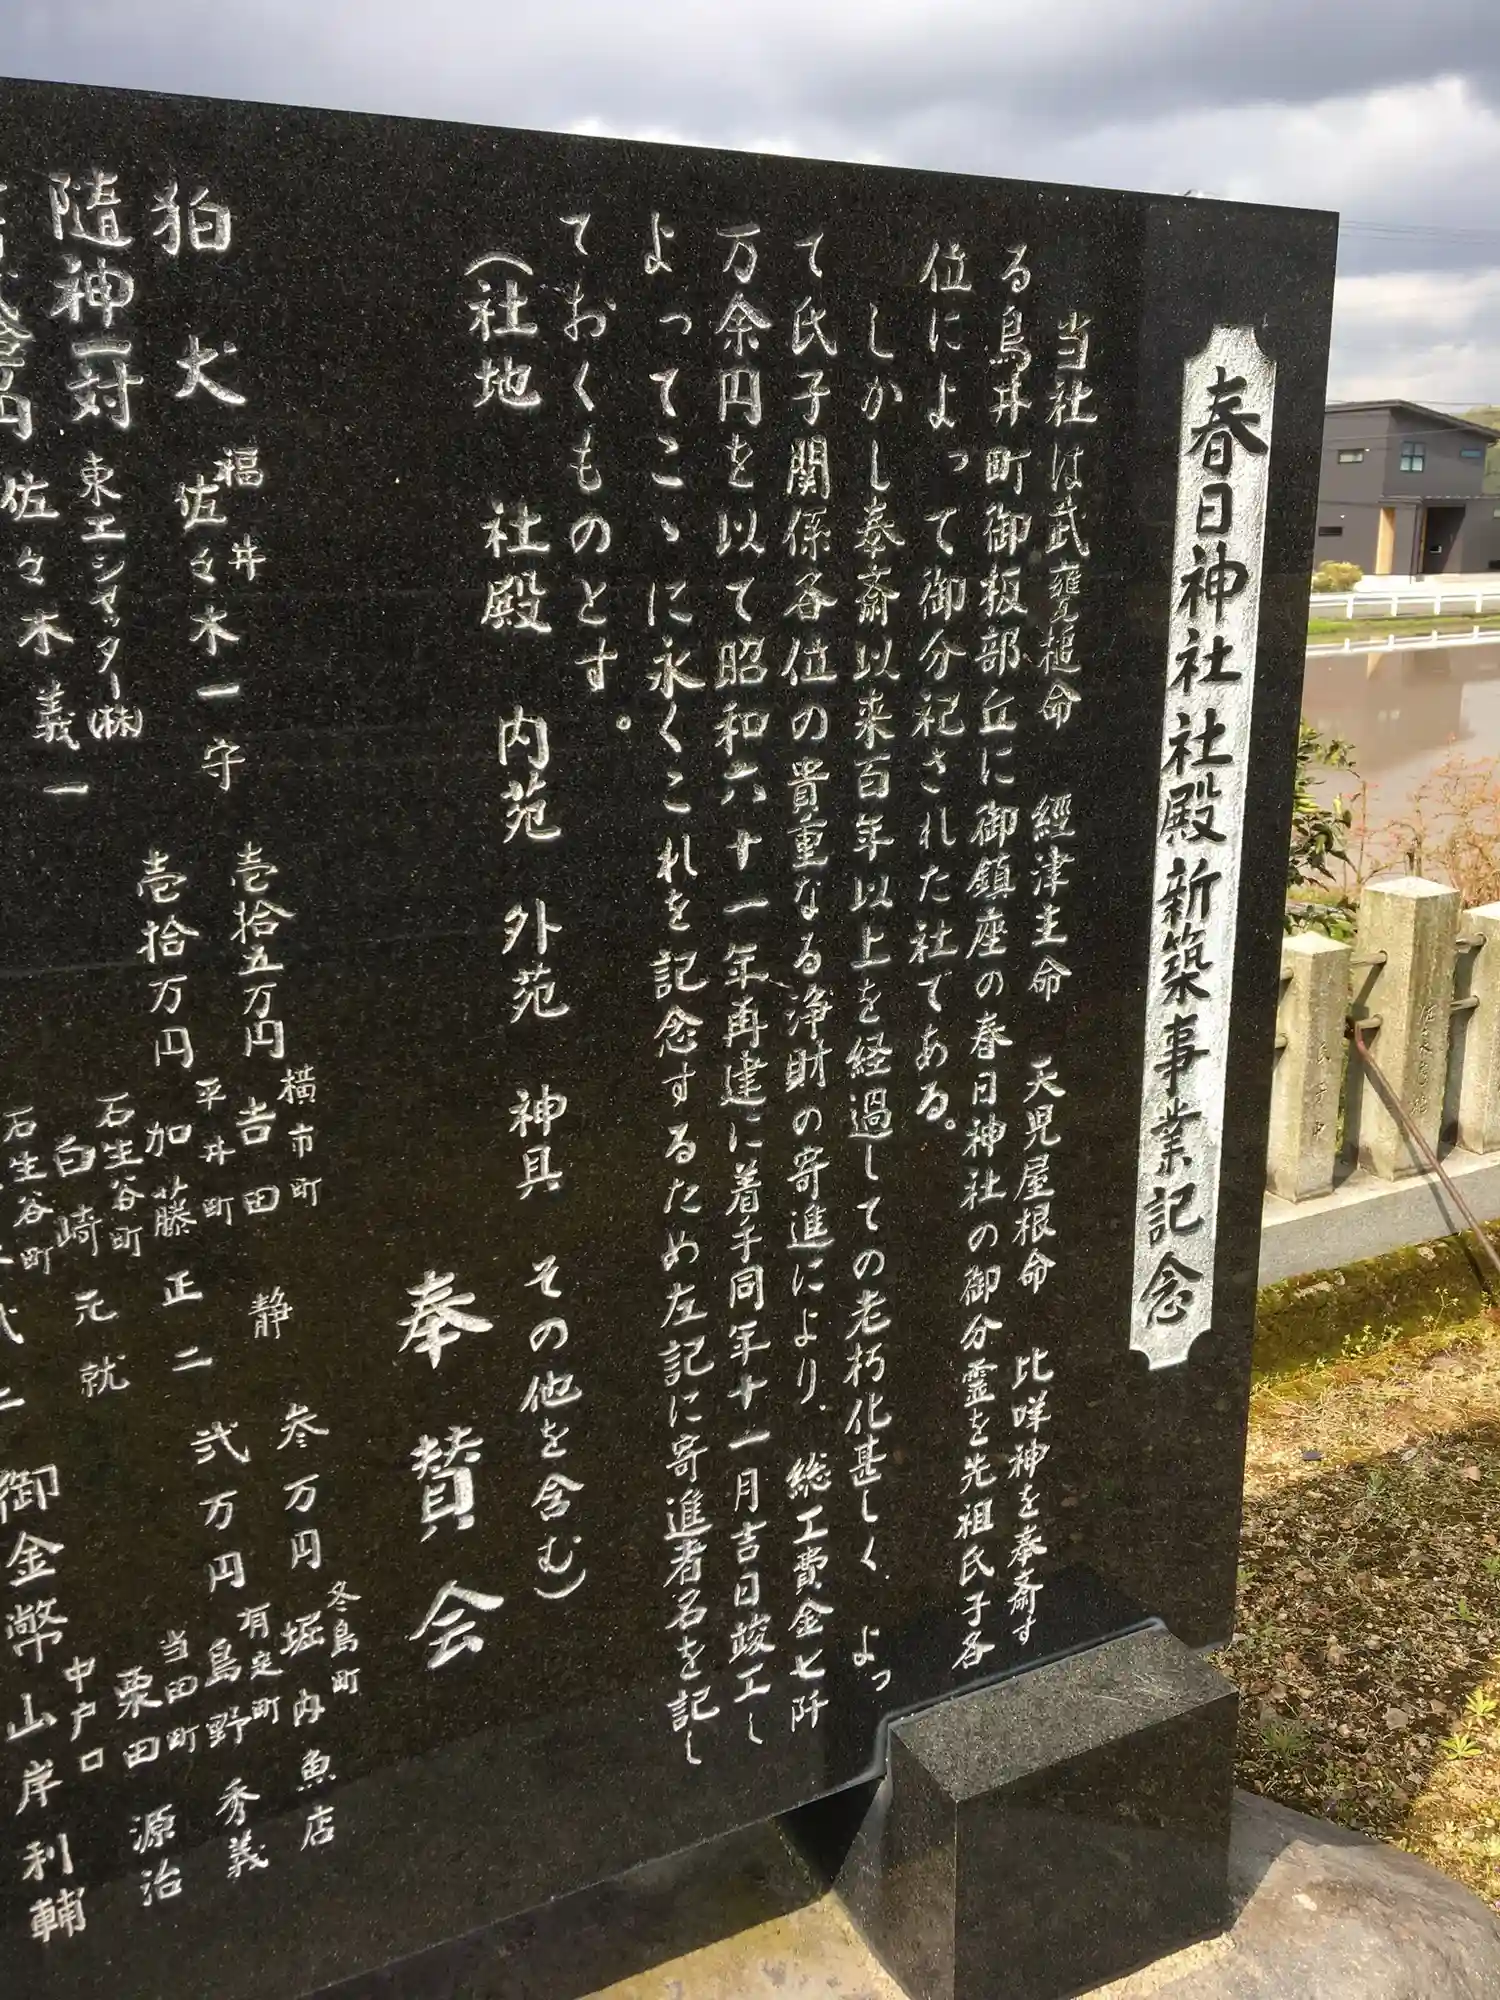 春日神社社殿新築事業記念
当社は武甕槌命　經津主命　天児屋根命　比咩神を奉斎す
る鳥井町御板部丘に御鎮座の春日神社の御分霊を先祖氏子各
位によって御分祀された社である。
しかし奉斎以来百年以上を経過しての老朽化甚しく　よっ
て氏子関係各位の貴重なる浄財の寄進により、総工費金七阡
万余円を以て昭和六十一年再建に着手同年十一月吉日竣工し
よってこゝに永くこれを記念するため左記に寄進者名を記し
ておくものとす。
（社地　社殿　内苑　外苑　神具　その他を含む）
奉賛会
狛犬　福井　佐々木一守
隨神一対　東工シャッター㈱
佐々木義一
壱拾五万円　横市町　吉田静
壱拾万円　平井町　加藤正二
石生谷町　白崎元就
石生谷町
参万円　冬島町　堀内魚店
弐万円　有定町　島野秀義
当田町　栗田源治
御金幣　中戸口　山岸利輔
氏子中